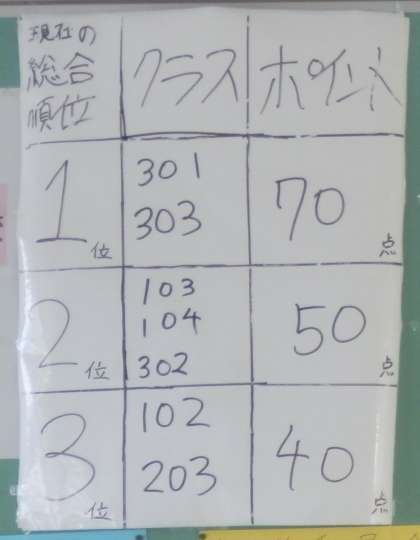 現在の
総合
順位
クラス
ポイント
1位
301
303
70点
2位
103
104
302
50点
3位
102
203
40点